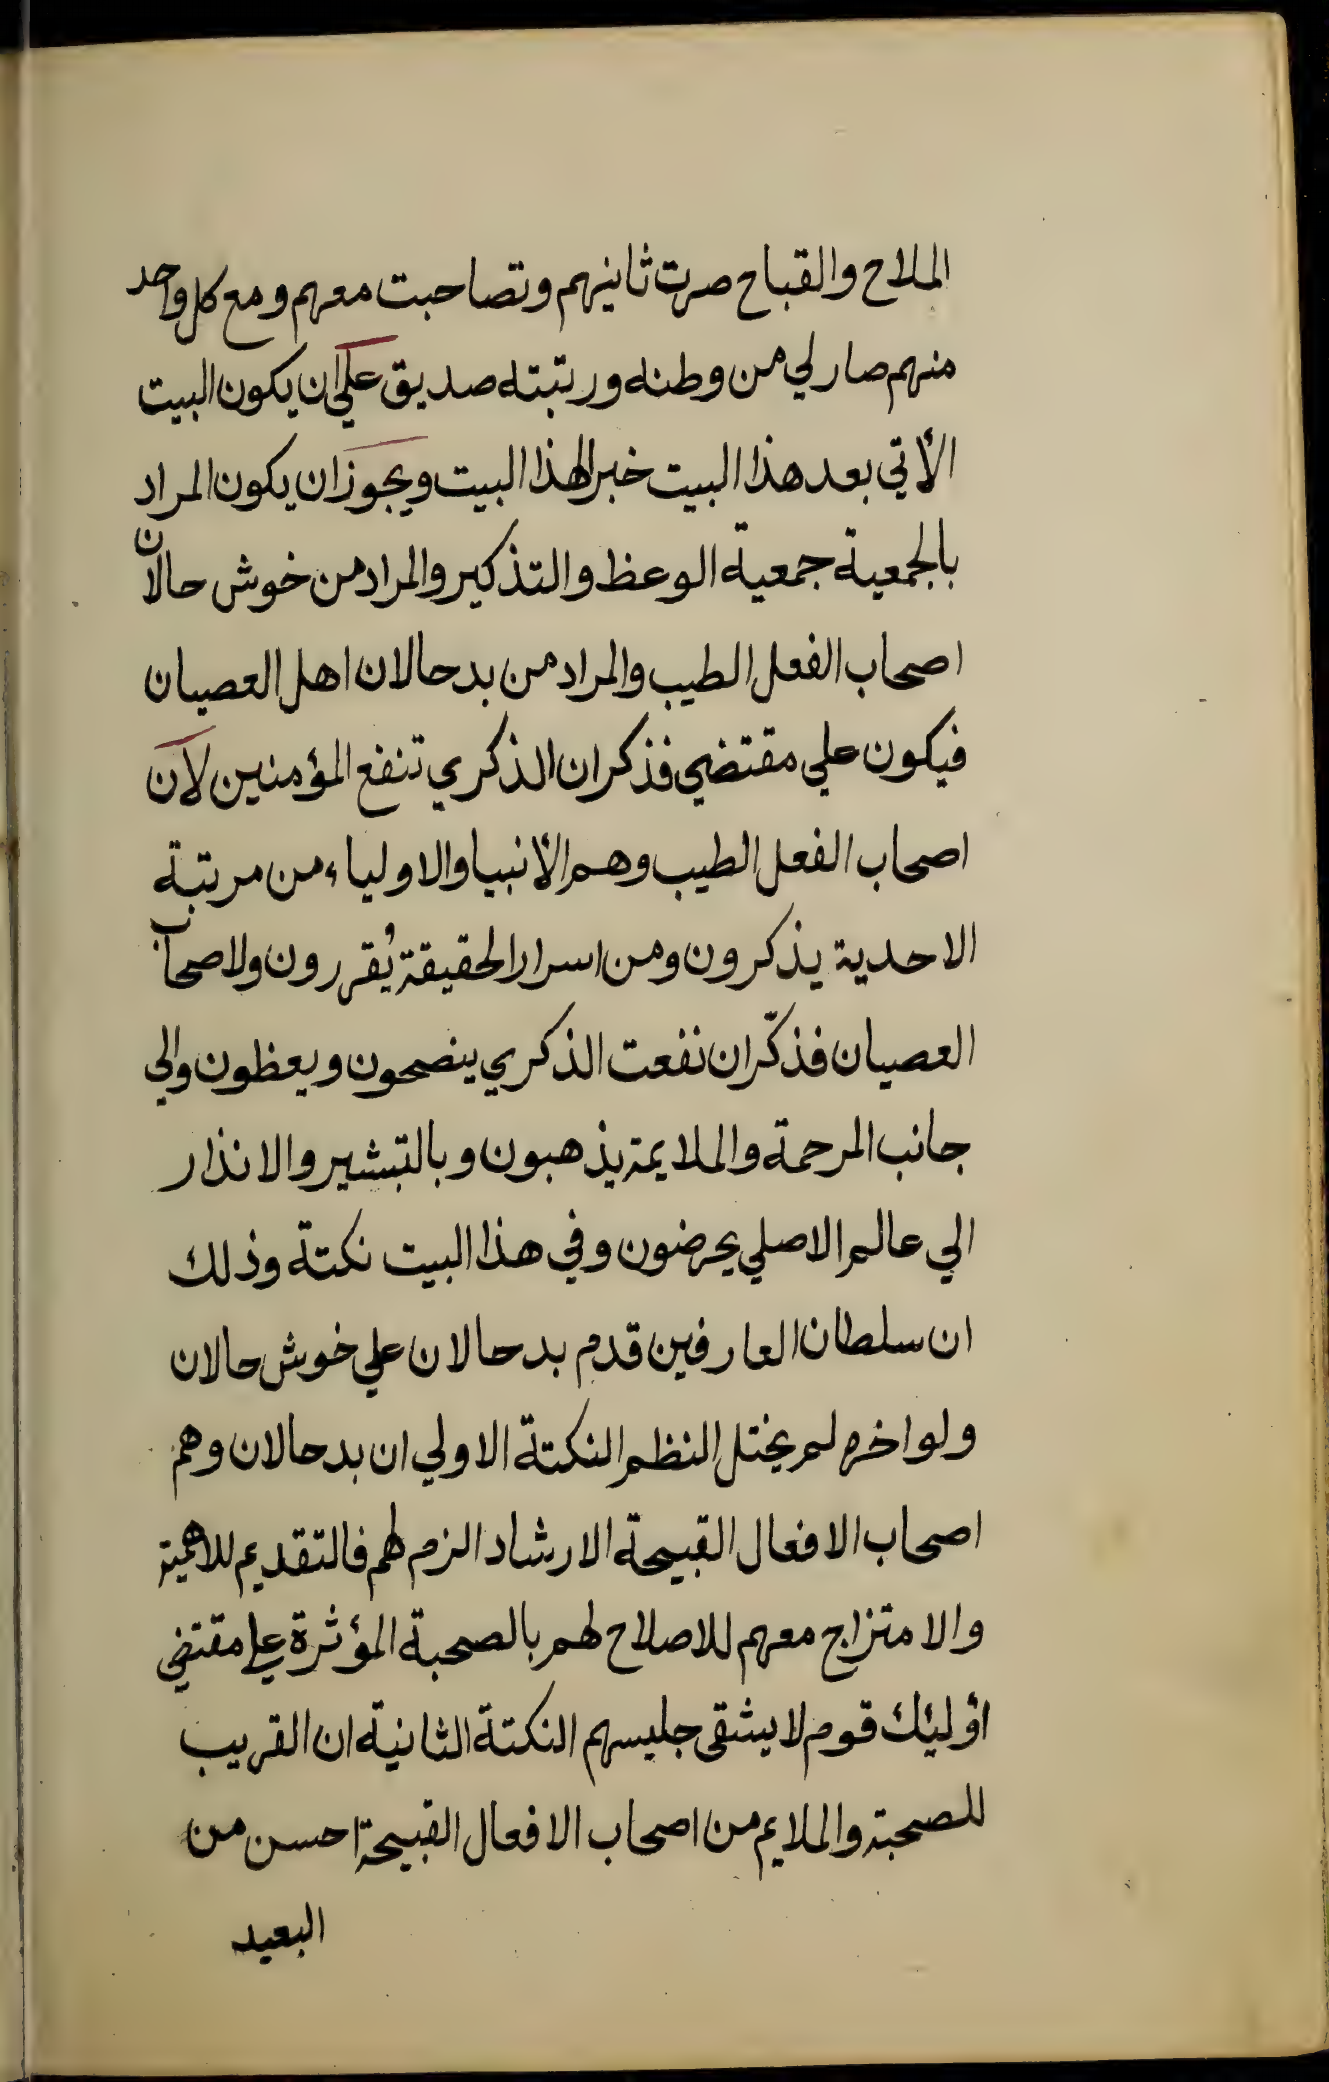 الملاح والقباح صرت ثانيهم وتصاحبت معهم ومع كل واحد
منهم صار لي من وطنه ورتبته صديق علي ان يكون البيت
الأتي بعد هذا البيت خبرا لهذا البيت ويجوز ان يكون المراد
بالجمعية جمعية الوعظ والتذكير والمراد من خوش حالان
اصحاب الفعل الطيب والمراد من بدحالان اهل العصيان
فيكون علي مقتضي فذكر ان الذكري تنفع المؤمنين لأن
اصحاب الفعل الطيب وهم الأنبيا والاولياء من مرتبة
الاحدية يذكرون ومن اسرار الحقيقة يُقررون ولاصحاب
العصيان فذكّر ان نفعت الذكري ينصحون ويعظون والي
جانب المرحمة والملايمة يذهبون وبالتبشير والانذار
الي عالم الاصلي يحرضون وفي هذا البيت نكتة وذلك
ان سلطان العارفين قدم بدحالان علي خوش حالان
ولو اخره لم يختل النظم النكتة الاولي ان بدحالان وهم
اصحاب الافعال القبيحة الارشاد الزم لهم فالتقديم للاهمية
والامتزاج معهم للاصلاح لهم بالصحبة المؤثرة علي مقتضي
أوليئك قوم لا يشقى جليسهم النكتة الثانية ان القريب
للصحبة والملايم من اصحاب الافعال القبيحة احسن من
البعيد